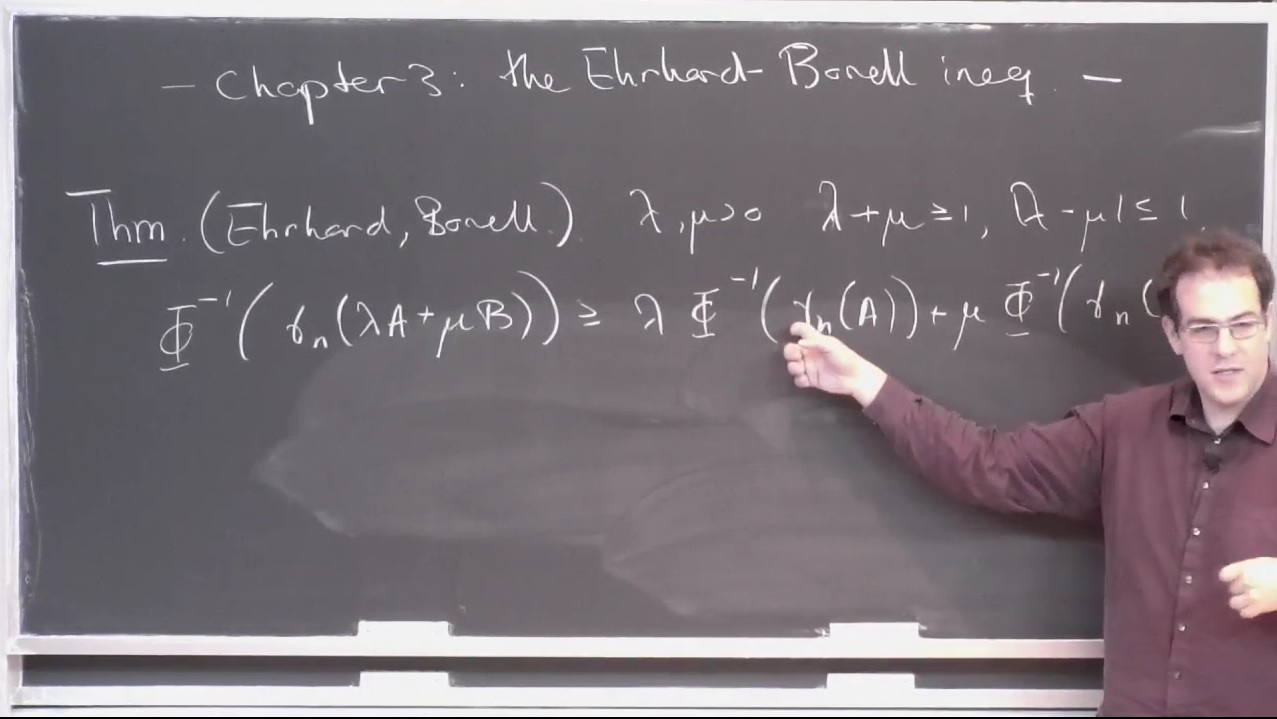 — Chapter 3: the Ehrhard-Borell ineq. —
Thm. (Ehrhard, Borell.) λ, μ>0 λ+μ ≥ 1, |λ - μ| ≤ 1
Φ⁻¹( γₙ(λA+μB)) ≥ λ Φ⁻¹(γₙ(A)) + μ Φ⁻¹(γₙ(